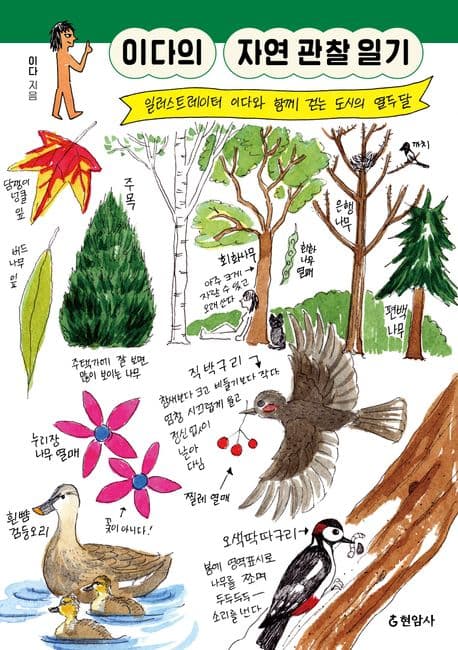 이다의 자연 관찰 일기
이다 지음
일러스트레이터 이다와 함께 걷는 도시의 열두 달
까치
담쟁이
덩굴
잎
주목
은행
나무
회화나무
아주 크게
자랄 수 있고
오래 산다
회화
나무
열매
버드
나무
잎
편백
나무
주택가에 잘 보면
많이 보이는 나무
직박구리
참새보다 크고 비둘기보다 작다
엄청 시끄럽게 울고
정신없이
날아
다님
누리장
나무 열매
찔레 열매
꽃이 아니다!
흰뺨
검둥오리
오색딱따구리
봄에 영역표시로
나무를 쪼며
두두두두두—
소리를 낸다
현암사